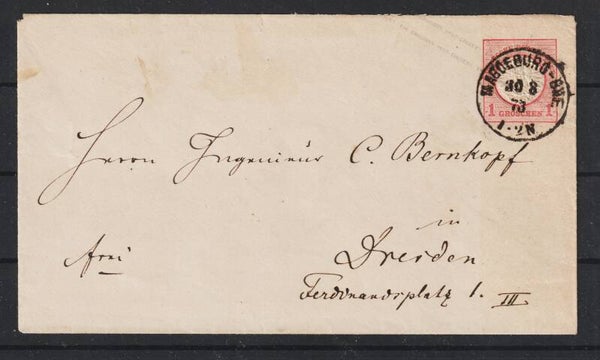 MAGDEBURG-BHF.
30 8
73
1-2N
1 GROSCHEN 1
Herrn Ingenieur C. Bernkopf
in
frei
Dresden
Ferdinandsplatz 1. III